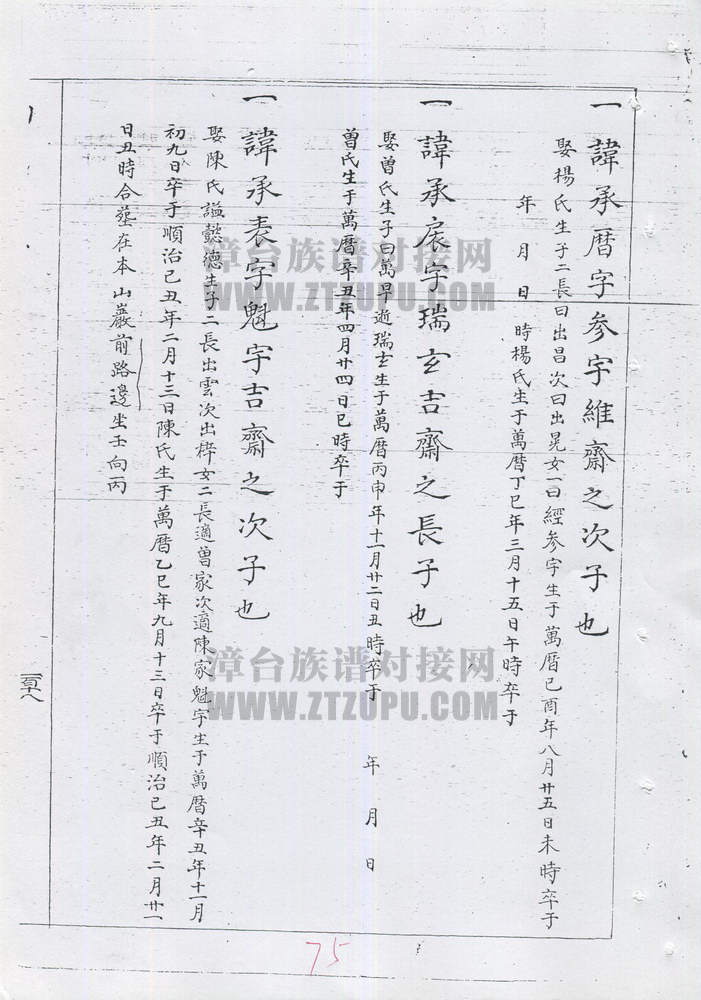 一諱承曆字参宇維齋之次子也
娶楊氏生子二長曰出昌次曰出晃女一曰經参宇生于萬曆己酉年八月廿五日未時卒于
年 月 日 時楊氏生于萬曆丁巳年三月十五日午時卒于
一諱承扆字瑞玄吉齋之長子也
娶曾氏生子曰萬早逝瑞玄生于萬曆丙申年十一月廿二日丑時卒于 年 月 日
曾氏生于萬曆辛丑年四月廿四日巳時卒于
一諱承表字魁宇吉齋之次子也
娶陳氏謚懿德生子二長出雲次出女二長適曾家次適陳家魁宇生于萬曆辛丑年十一月
初九日卒于順治己丑年二月十三日陳氏生于萬曆乙巳年九月十三日卒于順治己丑年二月廿一
日丑時合塟在本山巖前路邊坐壬向丙
75
漳台族谱对接网
WWW.ZTZUPU.COM
漳台族谱对接网
WWW.ZTZUPU.COM